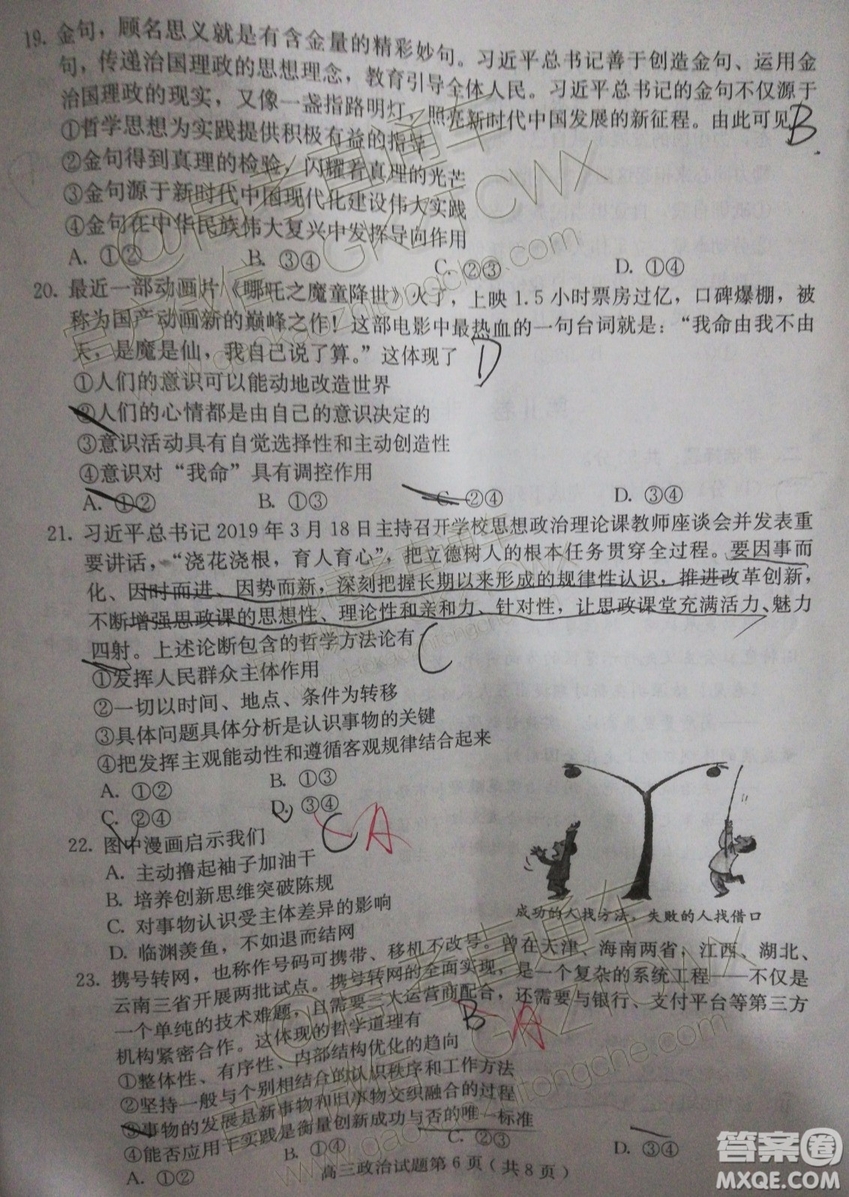 19. 金句，顾名思义就是有含金量的精彩妙句。习近平总书记善于创造金句、运用金
句，传递治国理政的思想理念，教育引导全体人民。习近平总书记的金句不仅源于
治国理政的现实，又像一盏指路明灯，照亮新时代中国发展的新征程。由此可见 B
①哲学思想为实践提供积极有益的指导
②金句得到真理的检验，闪耀着真理的光芒
③金句源于新时代中国现代化建设伟大实践
④金句在中华民族伟大复兴中发挥导向作用
A. ①② B. ③④ C. ②③ D. ①④
20. 最近一部动画片《哪吒之魔童降世》火了，上映 1.5 小时票房过亿，口碑爆棚，被
称为国产动画新的巅峰之作！这部电影中最热血的一句台词就是：“我命由我不由
天，是魔是仙，我自己说了算。”这体现了 D
①人们的意识可以能动地改造世界
②人们的心情都是由自己的意识决定的
③意识活动具有自觉选择性和主动创造性
④意识对“我命”具有调控作用
A. ①② B. ①③ C. ②④ D. ③④
21. 习近平总书记 2019 年 3 月 18 日主持召开学校思想政治理论课教师座谈会并发表重
要讲话，“浇花浇根，育人育心”，把立德树人的根本任务贯穿全过程。要因事而
化、因时而进、因势而新，深刻把握长期以来形成的规律性认识，推进改革创新，
不断增强思政课的思想性、理论性和亲和力、针对性，让思政课堂充满活力、魅力
四射。上述论断包含的哲学方法论有 C
①发挥人民群众主体作用
②一切以时间、地点、条件为转移
③具体问题具体分析是认识事物的关键
④把发挥主观能动性和遵循客观规律结合起来
A. ①② B. ①③
C. ②④ D. ③④
22. 图中漫画启示我们 C A
A. 主动撸起袖子加油干
B. 培养创新思维突破陈规
C. 对事物认识受主体差异的影响
D. 临渊羡鱼，不如退而结网
成功的人找方法，失败的人找借口
23. 携号转网，也称作号码可携带、移机不改号。曾在天津、海南两省，江西、湖北、
云南三省开展两批试点。携号转网的全面实现，是一个复杂的系统工程——不仅是
一个单纯的技术难题，且需要三大运营商配合，还需要与银行、支付平台等第三方
机构紧密合作。这体现的哲学道理有 B A
①整体性、有序性、内部结构优化的趋向
②坚持一般与个别相结合的认识秩序和工作方法
③事物的发展是新事物和旧事物交织融合的过程
④能否应用于实践是衡量创新成功与否的唯一标准
A. ①② B. ①③ C. ②③ D. ③④
高三政治试题第 6 页（共 8 页）
答案圈
MXQE.COM